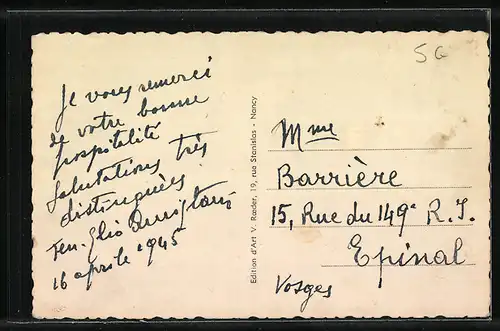 Je vous remerci
de votre bonne
hospitalité
Salutations très
distinguées
16 aprile 1945
Edition d'Art V. Rœder, 19, rue Stanislas - Nancy
5G
Mme
Barrière
15, Rue du 149e R. I.
Epinal
Vosges